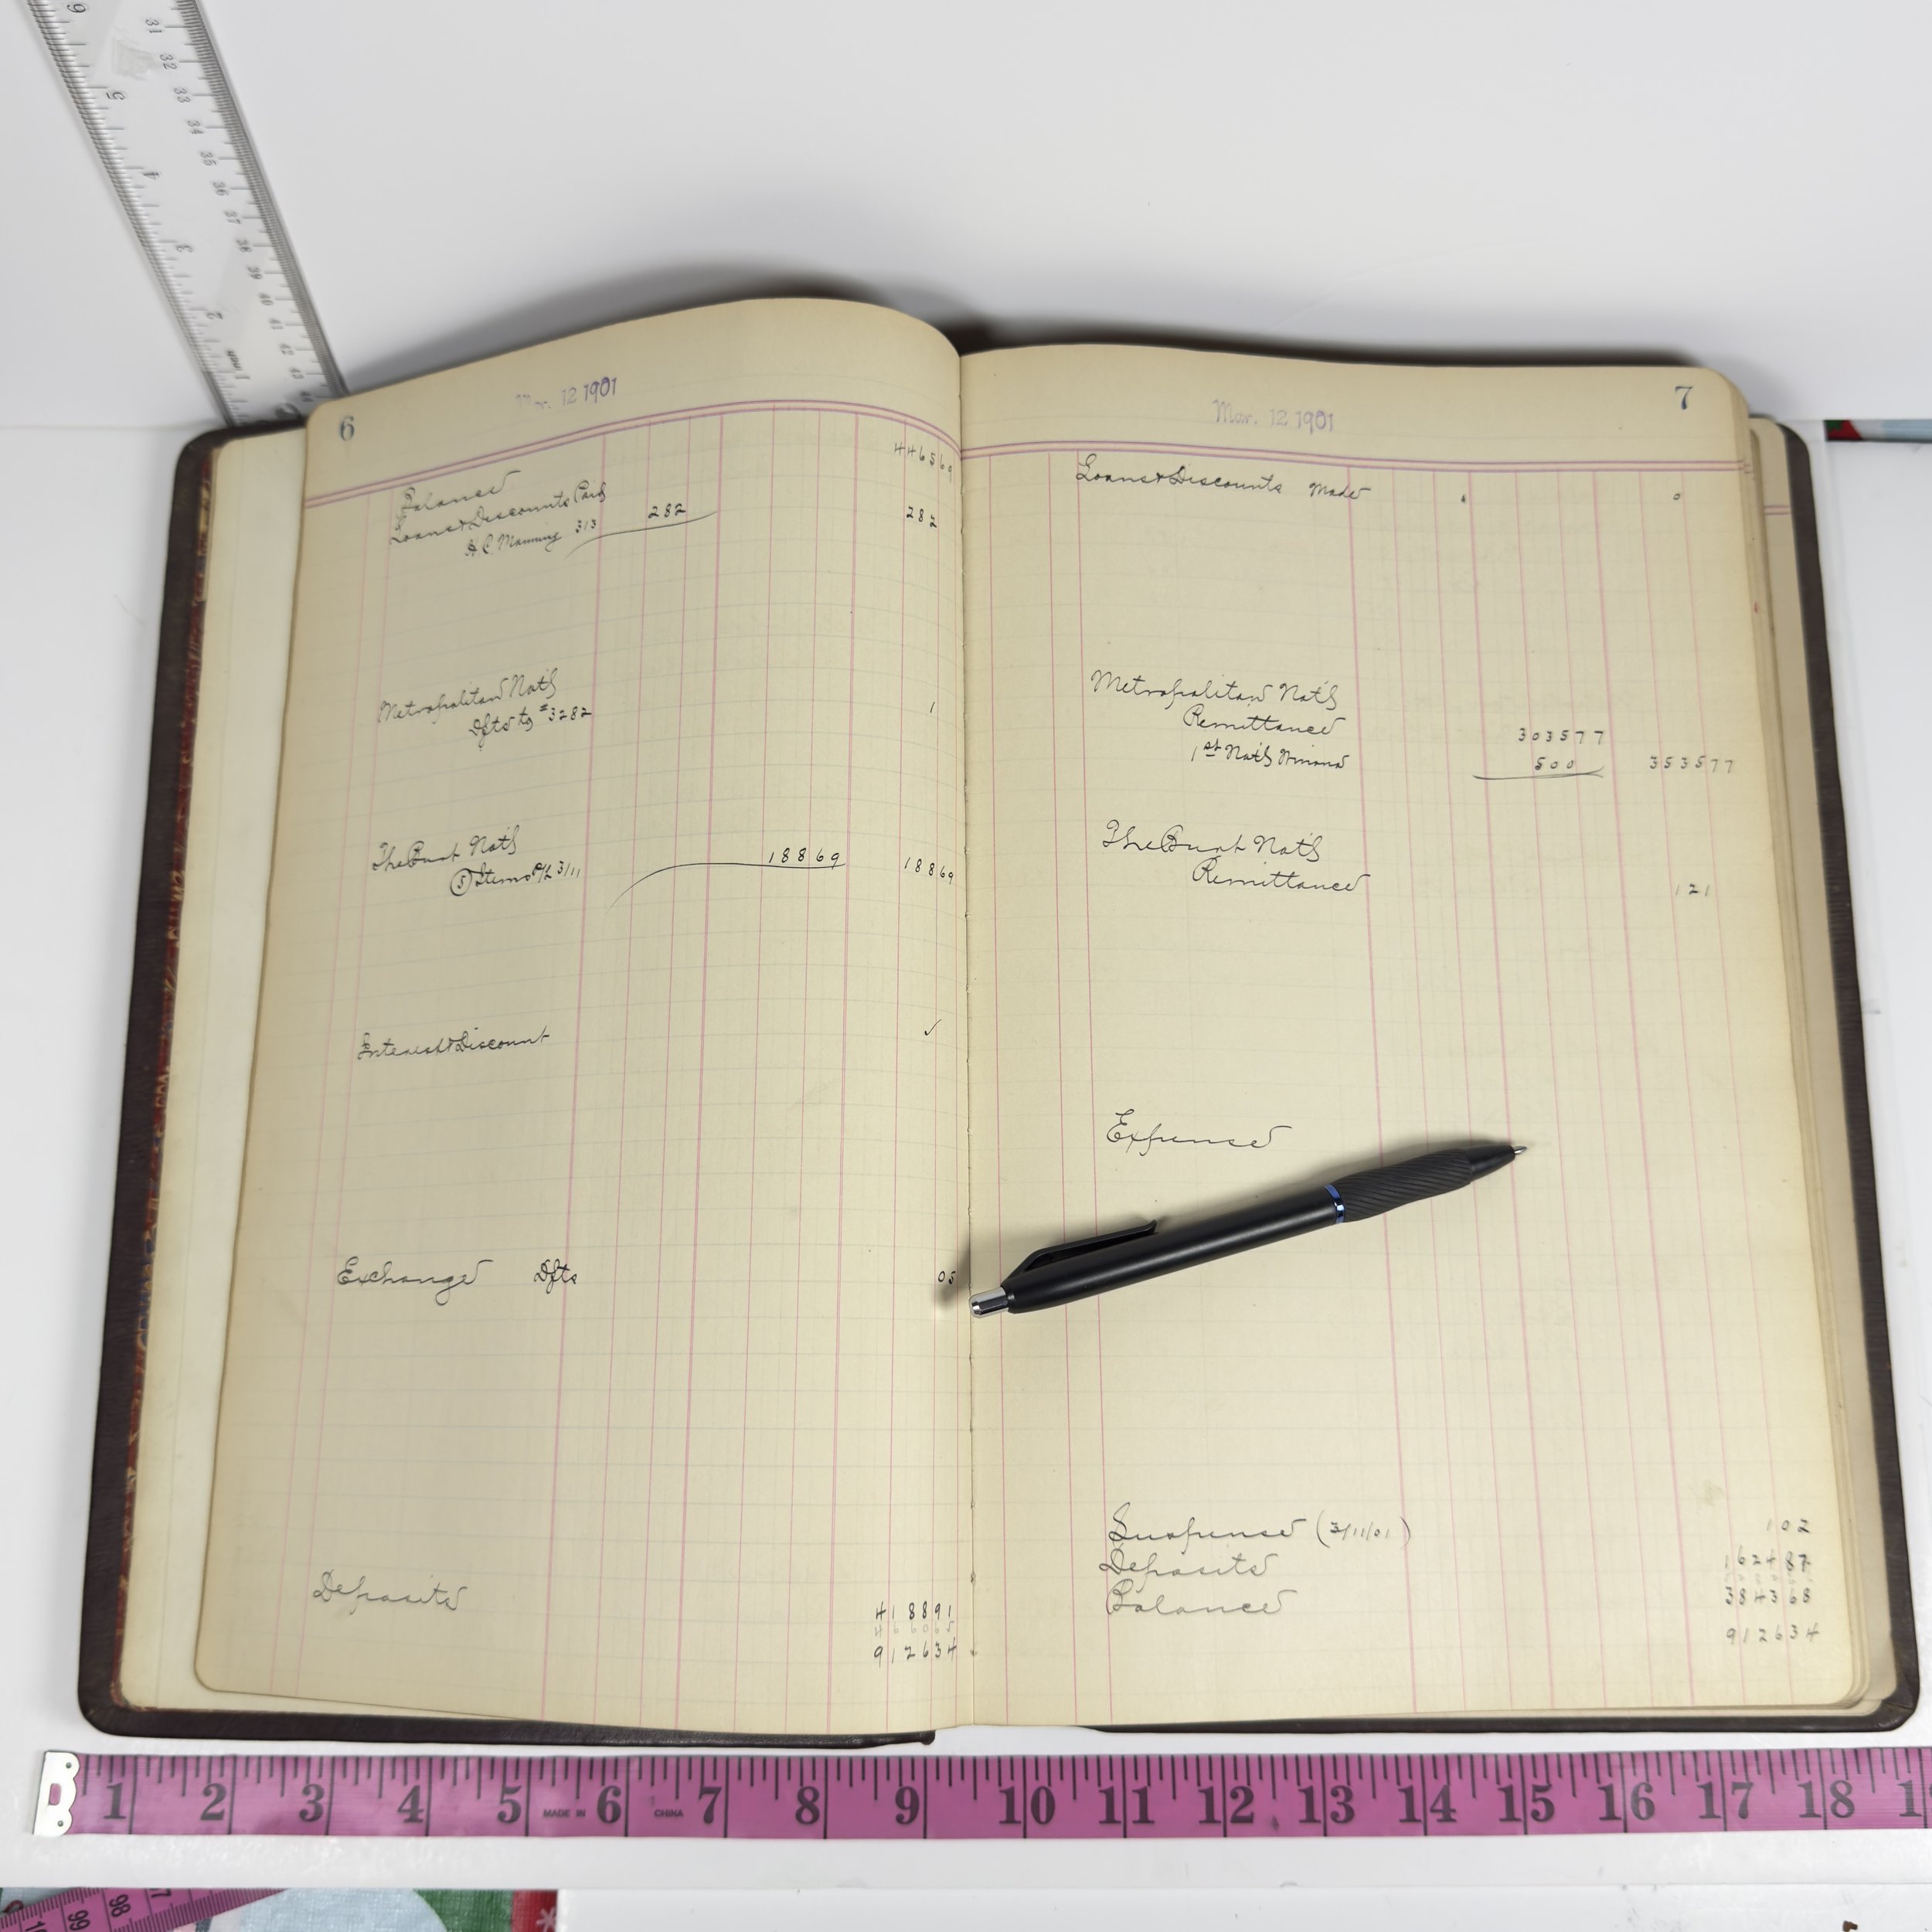 6
Mar. 12 1901
446569
Balance
Loans & Discounts Paid
282
282
H. C. Manning 313
Metropolitan Nat'l
Dfts to #3282
1
The Nat'l
5 Items 3/11
18869
18869
Interest & Discount
✓
Exchange Dfts
05
Deposits
418891
912634
7
Mar. 12 1901
Loans & Discounts Made
0
Metropolitan Nat'l
Remittance
303577
1st Nat'l Winona
500
353577
The Nat'l
Remittance
121
Expense
Suspense (3/11/01)
102
Deposits
162487
Balance
384368
912634
31
32
33
34
35
36
37
38
39
40
41
42
43
6
5
4
3
2
1
1 2 3 4 5 MADE IN 6 CHINA 7 8 9 10 11 12 13 14 15 16 17 18
99 98